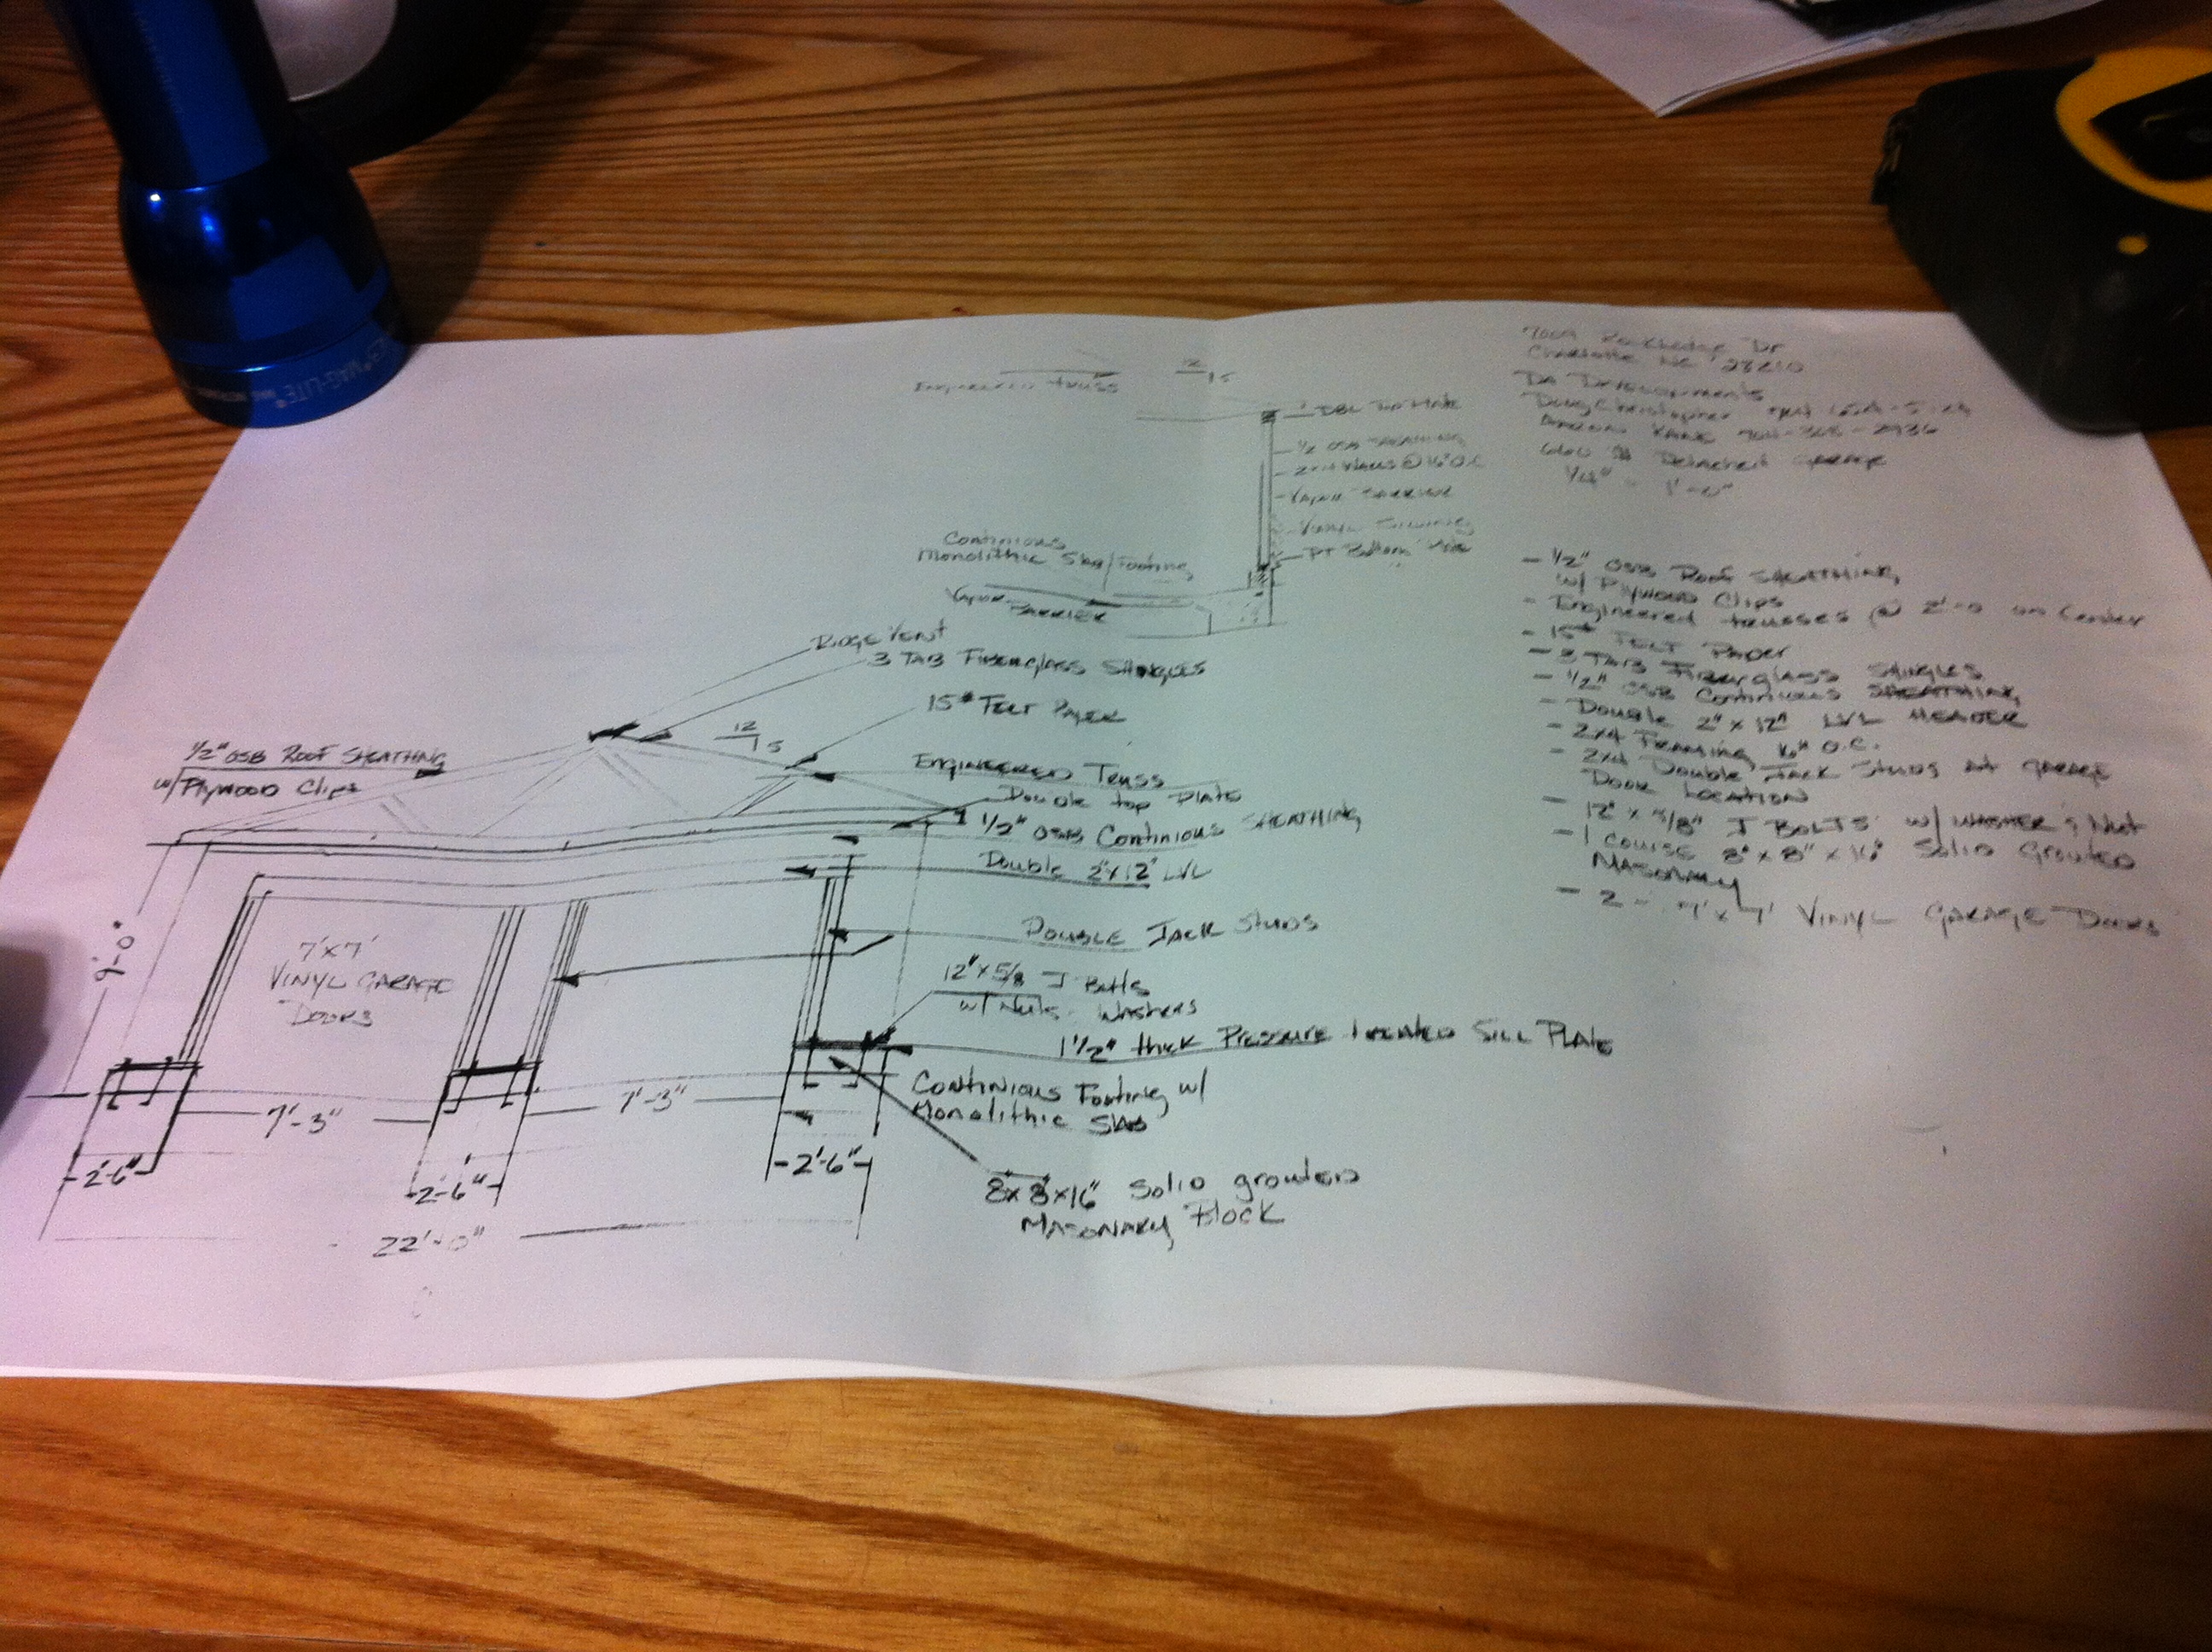 MAG-LITE®
Engineered Truss
12
5
DBL Top Plate
1/2 OSB Sheathing
2x4 Walls @ 16" O.C.
Vapor Barrier
Vinyl Siding
PT Bottom Plate
Continious
Monolithic Slab/Footing
Vapor
Barrier
Dr
Charlotte NC 28210
DA Developments
Doug Christopher
Detached Garage
1/4" = 1'-0"
- 1/2" OSB Roof Sheathing
w/ Plywood Clips
- Engineered trusses @ 2'-0 on Center
- 15# Felt Paper
- 3 Tab Fiberglass Shingles
- 1/2" OSB Continious Sheathing
- Double 2" x 12" LVL Header
- 2x4 Framing 16" O.C.
- 2x4 Double Jack Studs at Garage
Door Location
- 12" x 5/8" J Bolts w/ Washer & Nut
- 1 course 8" x 8" x 16" Solid Grouted
Masonry
- 2 - 7' x 7' Vinyl Garage Doors
Ridge Vent
3 Tab Fiberglass Shingles
15# Felt Paper
12
5
1/2" OSB Roof Sheathing
w/ Plywood Clips
Engineered Truss
Double top Plate
1/2" OSB Continious Sheathing
Double 2"x12" LVL
9'-0"
7'x7'
Vinyl Garage
Doors
Double Jack Studs
12" x 5/8 J Bolts
w/ Nuts Washers
1 1/2" thick Pressure treated Sill Plate
Continious Footing w/
Monolithic Slab
7'-3"
7'-3"
2'-6"
2'-6"
2'-6"
22'-0"
8x8x16" Solid grouted
Masonary Block